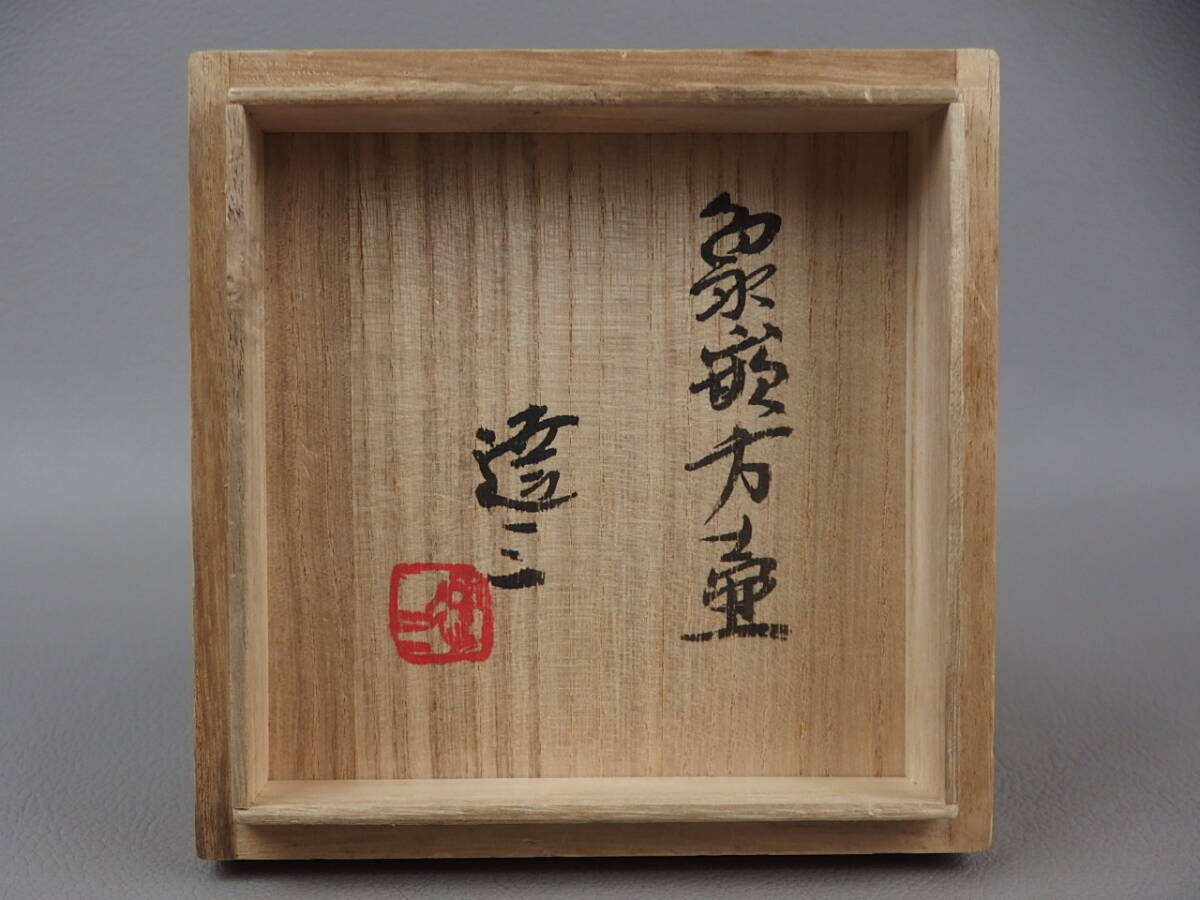 象嵌方壷
達三